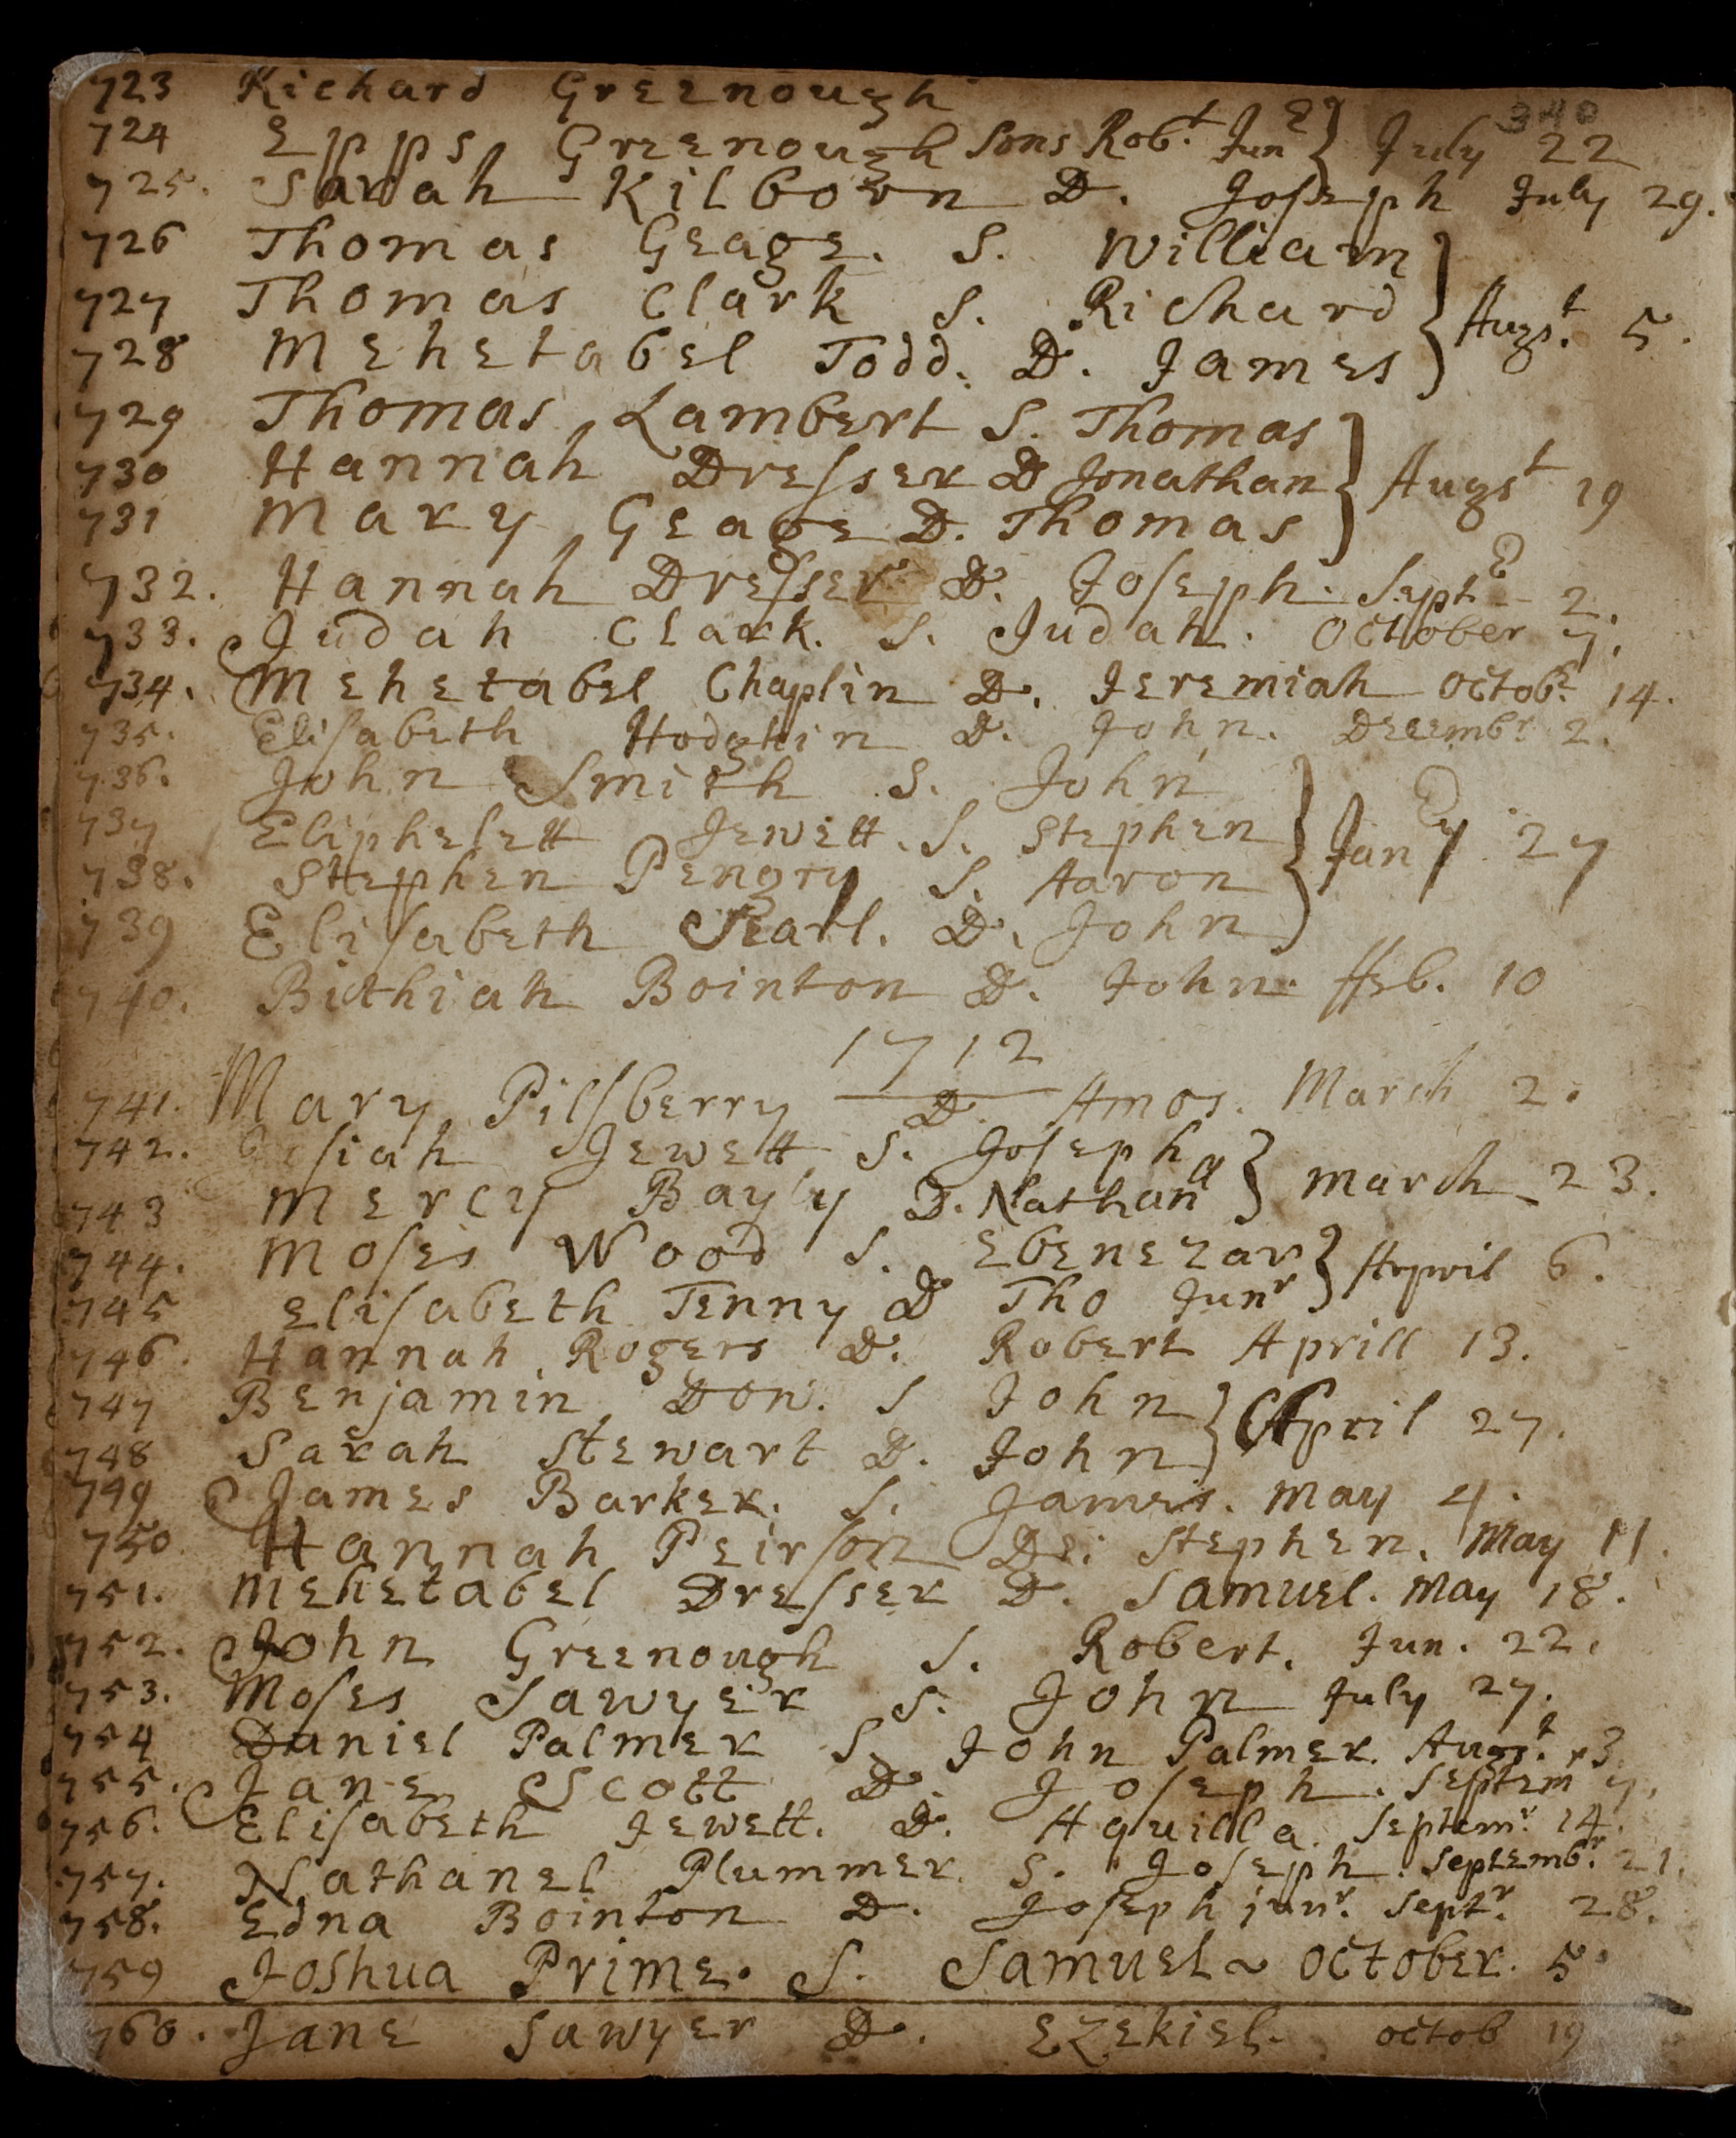 340
723 Richard Greenough
724 Epps Greenough Sons Robt. Junr } July 22
725. Sarah Kilborn D. Joseph July 29.
726 Thomas Geage. S. William
727 Thomas Clark S. Richard } Augst. 5.
728 Mehetabel Todd. D. James
729 Thomas Lambert S. Thomas
730 Hannah Dresser D Jonathan } Augst 19
731 Mary Geage D. Thomas
732. Hannah Dresser D. Joseph. Septr 2.
733. Judah Clark. S. Judah. October 7.
734. Mehetabel Chaplin D. Jeremiah Octobr. 14.
735. Elisabeth Hodgkin D. John. Decembr. 2.
736. John Smith S. John
737 Eliphelett Jewett. S. Stephen } Jany 27
738. Stephen Pengry S. Aaron
739 Elisabeth Searl. D. John
740. Bithiah Bointon D. John. ffeb. 10
1712
741. Mary Pilsberry D. Amos. March 2.
742. Jewett S. Joseph
743 Mercy Bayly D. Nathanll } March 23.
744. Moses Wood S. Ebenezar } April 6.
745 Elisabeth Tenny D Tho Junr
746. Hannah Rogers D. Robert Aprill 13.
747 Benjamin Dow. S John } April 27.
748 Sarah Stewart D. John
749 James Barker. S. James. May 4.
750. Hannah Peirson D. Stephen. May 11.
751. Mehetabel Dresser D. Samuel. May 18.
752. John Greenough S. Robert. Jun. 22.
753. Moses Sawyer S. John July 27.
754 Daniel Palmer S. John Palmer. Augst. 3.
755. Jane Scott D. Joseph. Septem 7.
756. Elisabeth Jewett. D. Aquilla. Septemr. 14.
757. Nathanel Plummer. S. Joseph. Septembr. 21.
758. Edna Bointon D. Joseph junr. Septr. 28.
759 Joshua Prime. S. Samuel ~ October. 5.
760. Jane Sawyer D. Ezekiel. octob 19